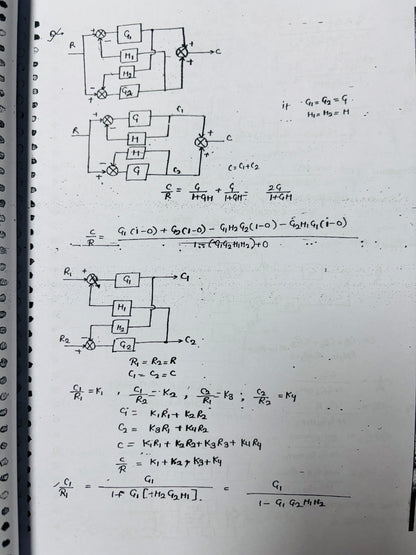 R
G₁
H₁
H₂
G₂
C
if G₁ = G₂ = G
H₁ = H₂ = H
R
G
C₁
H
H
G
C₂
C
C = C₁+C₂
C/R = G/1+GH + G/1+GH = 2G/1+GH
C/R = G₁(1-0) + G₂(1-0) - G₁H₂G₂(1-0) - G₂H₁G₁(1-0) / 1-(G₁G₂H₁H₂)+0
R₁
G₁
C₁
H₁
H₂
R₂
G₂
C₂
R₁ = R₂ = R
C₁ = C₂ = C
C₁/R₁ = K₁ , C₁/R₂ = K₂ , C₂/R₁ = K₃ , C₂/R₂ = K₄
C₁ = K₁R₁ + K₂R₂
C₂ = K₃R₁ + K₄R₂
C = K₁R₁ + K₂R₂ + K₃R₃ + K₄R₄
C/R = K₁ + K₂ + K₃ + K₄
C₁/R₁ = G₁ / 1+G₁[-H₂G₂H₁] = G₁ / 1-G₁G₂H₁H₂